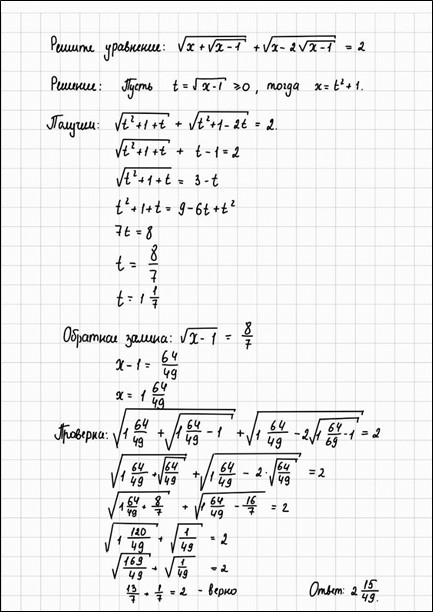 Решите уравнение: √(x + √(x-1)) + √(x - 2√(x-1)) = 2
Решение: Пусть t = √(x-1) ≥ 0, тогда x = t² + 1.
Получим: √(t²+1+t) + √(t²+1-2t) = 2.
√(t²+1+t) + t-1 = 2
√(t²+1+t) = 3-t
t²+1+t = 9-6t+t²
7t = 8
t = 8/7
t = 1 1/7
Обратная замена: √(x-1) = 8/7
x-1 = 64/49
x = 1 64/49
Проверка: √(1 64/49 + √(1 64/49 - 1)) + √(1 64/49 - 2√(1 64/69 - 1)) = 2
√(1 64/49 + √(64/49)) + √(1 64/49 - 2·√(64/49)) = 2
√(1 64/49 + 8/7) + √(1 64/49 - 16/7) = 2
√(1 120/49) + √(1/49) = 2
√(169/49) + √(1/49) = 2
13/7 + 1/7 = 2 - верно Ответ: 2 15/49.